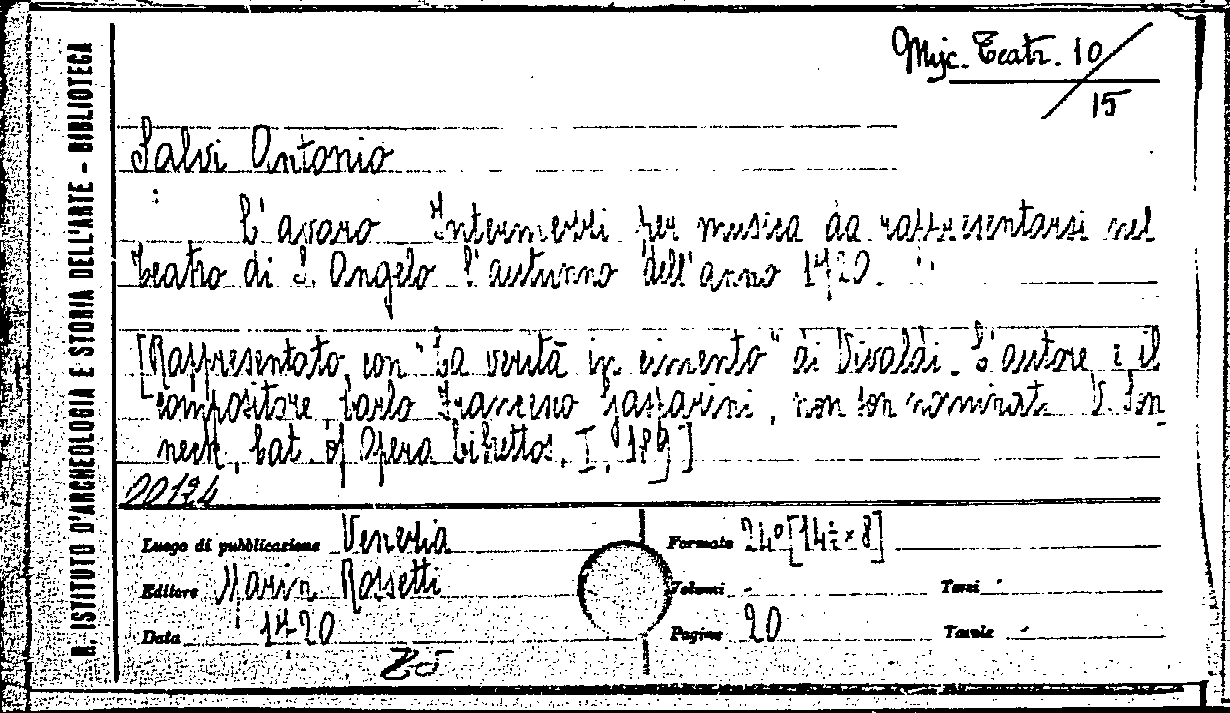 Misc. Teatr. 10/15
R. ISTITUTO D'ARCHEOLOGIA E STORIA DELL'ARTE - BIBLIOTECA
Salvi Antonio
L'avaro Intermezzi per musica da rappresentarsi nel
Teatro di S. Angelo l'autunno dell'anno 1720.
[Rappresentato con "La verità in cimento" di Vivaldi. L'autore e il
compositore, Carlo Francesco Gasparini, non son nominati V. Son
neck, Cat. of Opera Librettos, I, 189]
00124
Luogo di pubblicazione Venezia Formato 24° [14½ x 8]
Editore Marin Rossetti Volumi - Tomi -
Data 1720 Pagine 20 Tavole -